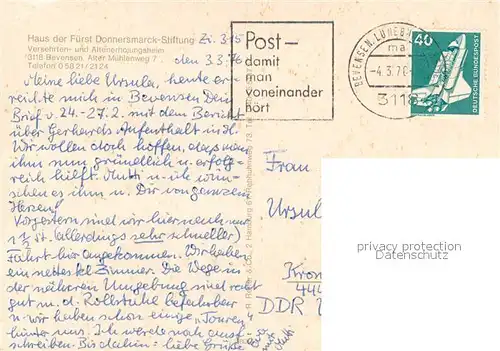 Haus der Fürst Donnersmarck-Stiftung
Versehrten- und Altenerholungsheim
3118 Bevensen, Alter Mühlenweg 7
Telefon 0 58 21 / 21 24
Zi. 315
den 3.3.76
Meine liebe Ursula, heute er-
reichte mich in Bevensen Dein
Brief v. 24.-27.2. mit dem Bericht
über Gerhards Aufenthalt in
Wir wollen doch hoffen, dass man
ihm nun gründlich u. erfolg-
reich hilft. Mutti u. ich wün-
schen es ihm u. Dir von ganzem
Herzen!
Vorgestern sind wir hier nach nur
1 1/2 st. (allerdings sehr schneller)
Fahrt hier angekommen. Wir haben
ein nettes Zimmer. Die Wege in
der näheren Umgebung sind recht
gut m. d. Rollstuhl befahrbar
u. wir haben schon einige "Touren"
hinter uns. Ich werde noch ausf.
schreiben. Bis dahin liebe Grüße
Mutti
Post-
damit
man
voneinander
hört
BEVENSEN, LÜNEB
-4.3.76
3118
40
DEUTSCHE BUNDESPOST
Frau
Ursul
privacy protection
datenschutz
Kron
444
DDR